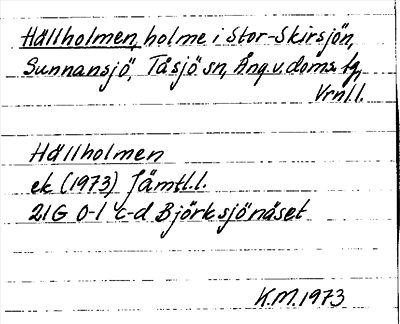 Hällholmen, holme i Stor-Skirsjön,
Sunnansjö, Tåsjö sn, Ång.v.doms. fg,
Vrnl.l.
Hällholmen
ek (1973) Jämtl.l.
21G 0-1 c-d Björksjönäset
K.M. 1973